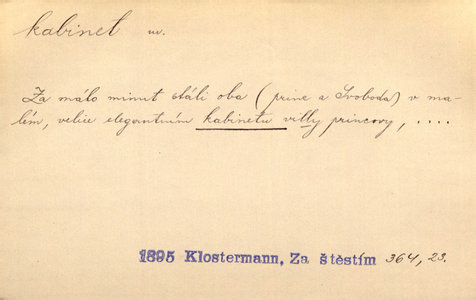 kabinet m.
Za málo minut stáli oba (princ a Svoboda) v ma-
lém, velice elegantním kabinetu villy princovy, ....
1895 Klostermann, Za štěstím 364, 23.